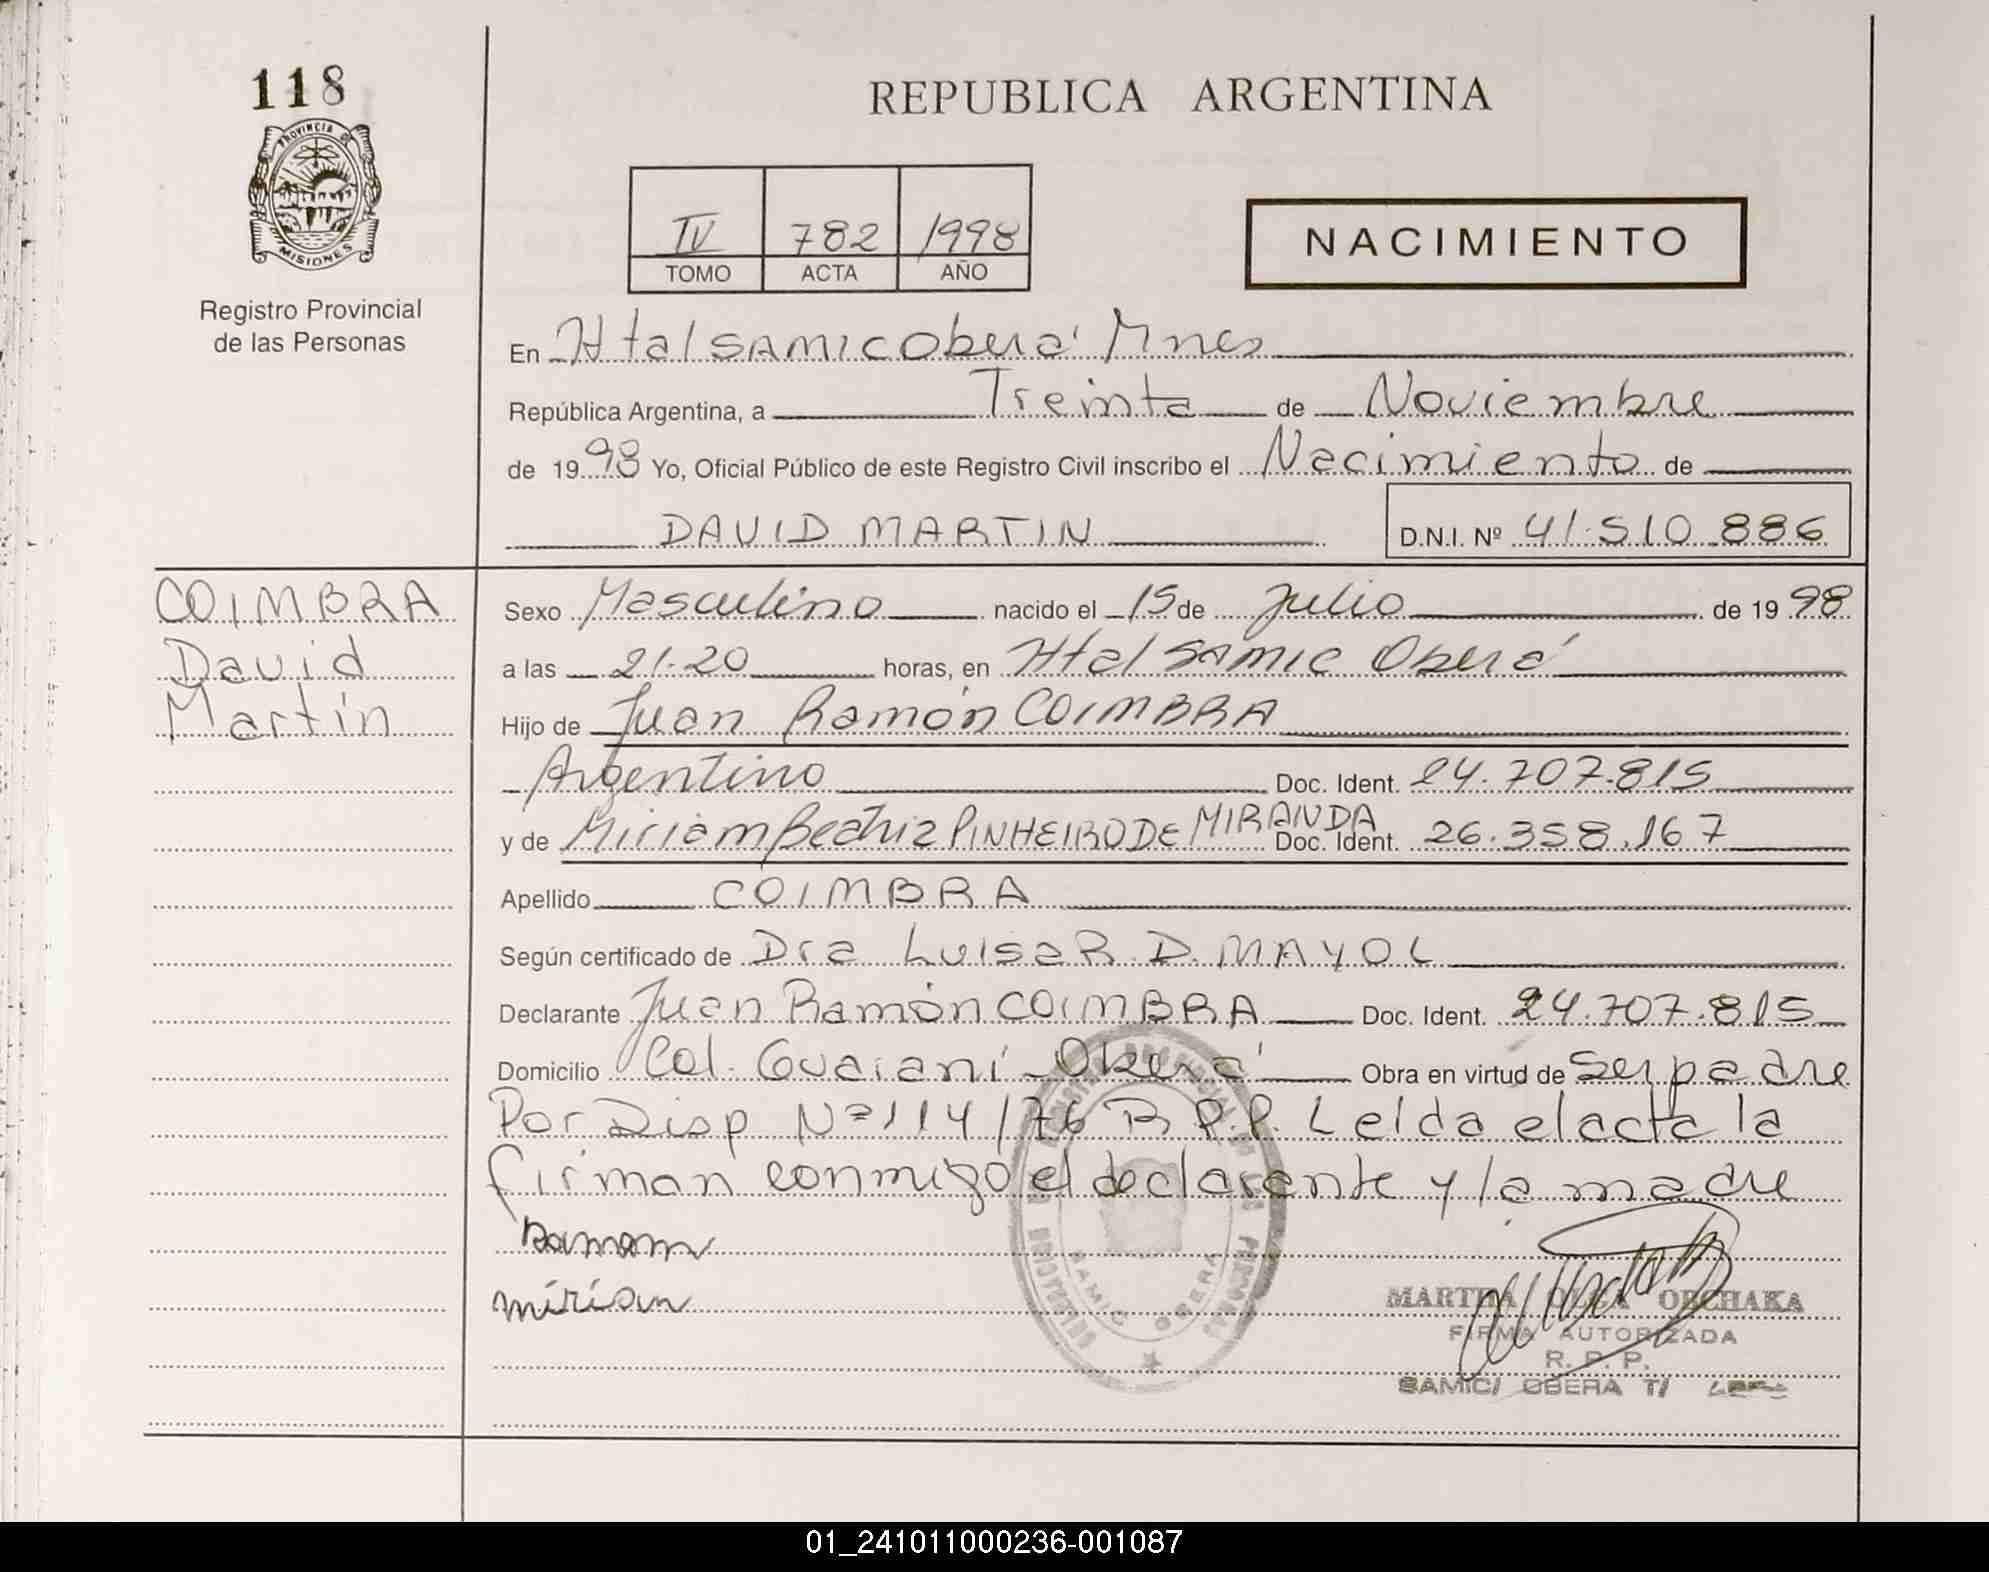 118
PROVINCIA DE
MISIONES
Registro Provincial
de las Personas
REPUBLICA ARGENTINA
IV 782 1998
TOMO ACTA AÑO
NACIMIENTO
En Htal SAMIC Oberá Mnes
República Argentina, a Treinta de Noviembre
de 1998 Yo, Oficial Público de este Registro Civil inscribo el Nacimiento de
DAVID MARTIN D.N.I. Nº 41.510.886
COIMBRA
David
Martín
Sexo Masculino nacido el 15 de Julio de 1998
a las 21.20 horas, en Htal SAMIC Oberá
Hijo de Juan Ramón COIMBRA
Argentino Doc. Ident. 24.707.815
y de Miriam Beatriz PINHEIRO DE MIRANDA Doc. Ident. 26.358.167
Apellido COIMBRA
Según certificado de Dra Luisa R. D. MAYOL
Declarante Juan Ramón COIMBRA Doc. Ident. 24.707.815
Domicilio Col. Guaraní Oberá Obra en virtud de Ser padre
Por Disp Nº 114/76 R.P.P. Leida el acta la
firman conmigo el declarante y la madre
Ramom
miriam
SAMIC OBERA
MARTHA OLGA OBCHAKA
FIRMA AUTORIZADA
R. P. P.
SAMIC/ OBERA T/
01_241011000236-001087